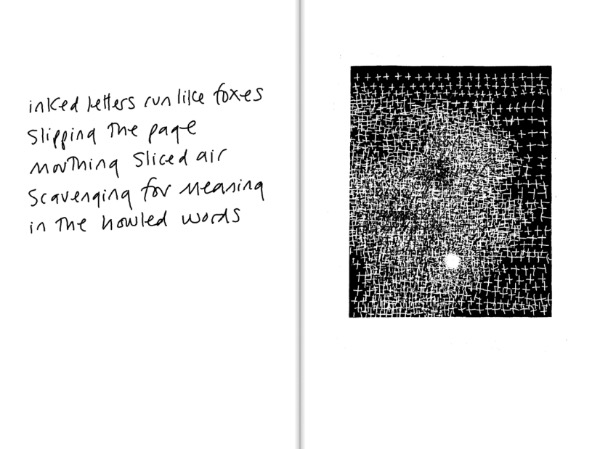 inked letters run like foxes
slipping the page
mouthing sliced air
scavenging for meaning
in the howled words